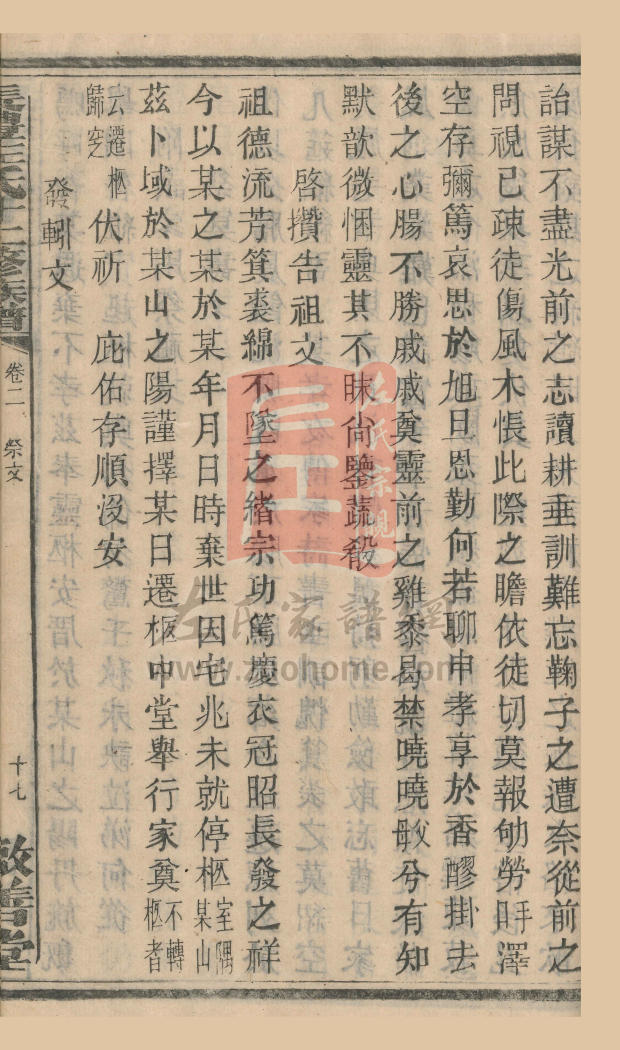 詒謀不盡光前之志讀耕垂訓難忘鞠子之遭奈從前之
問視已疎徒傷風木悵此際之瞻依徒切莫報劬勞手澤
空存彌篤哀思於旭旦恩勤何若聊申孝享於香醪掛去
後之心腸不勝戚戚奠靈前之雞黍曷禁嘵嘵殽兮有知
默歆微悃靈其不昧尙鑒蔬殽
啓攢告祖文
祖德流芳箕裘綿不墜之緒宗功篤慶衣冠昭長發之祥
今以某之某於某年月日時棄世因宅兆未就停柩室隅某山
茲卜域於某山之陽謹擇某日遷柩中堂舉行家奠不轉柩者
云遷柩歸窆 伏祈 庇佑存順沒安
發軔文
氏十二修族譜 卷二 祭文 十七 敘善堂
左氏家譜網
www.zuohome.com
左氏宗親